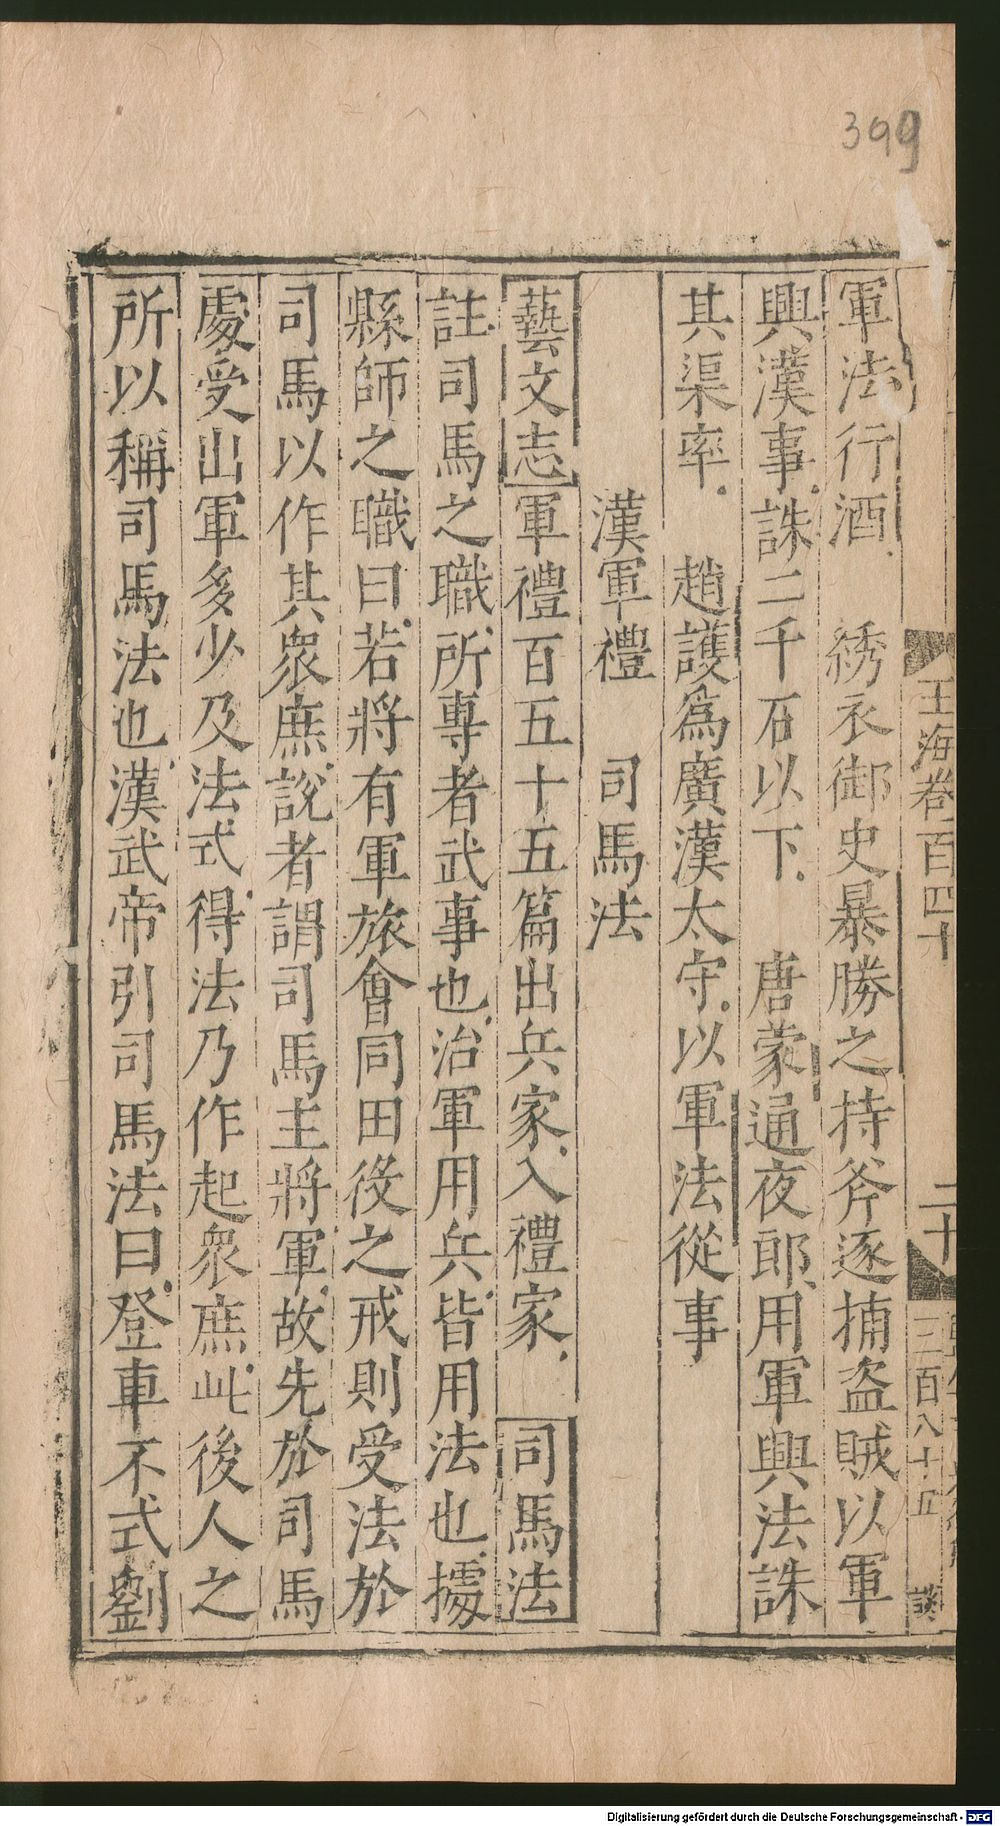 399
玉海卷百四十
二十
三百八十五
談
軍法行酒 綉衣御史暴勝之持斧逐捕盜賊以軍
興漢事誅二千石以下 唐蒙通夜郎用軍興法誅
其渠率 趙護為廣漢太守以軍法從事
漢軍禮 司馬法
藝文志軍禮百五十五篇出兵家入禮家 司馬法
註司馬之職所專者武事也治軍用兵皆用法也據
縣師之職曰若將有軍旅會同田役之戒則受法於
司馬以作其衆庶說者謂司馬主將軍故先於司馬
處受出軍多少及法式得法乃作起衆庶此後人之
所以稱司馬法也漢武帝引司馬法曰登車不式劉
Digitalisierung gefördert durch die Deutsche Forschungsgemeinschaft - DFG